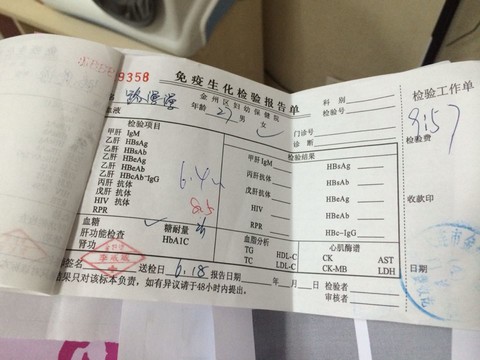 9358
免疫生化检验报告单
金州区妇幼保健院
路漫漫 年龄 27 男 女
科别
检验号
血液
门诊号
诊断
检验项目
检验结果
甲肝 IgM
乙肝 HBsAg
乙肝 HBsAb
乙肝 HBeAg
乙肝 HBeAb
乙肝 HBcAb-IgG
丙肝 抗体
戊肝 抗体
HIV
RPR
6.42
8.5
甲肝 IgM
丙肝 抗体
戊肝 抗体
HIV
RPR
HBsAg
HBsAb
HBeAg
HBeAb
HBc-IgG
血糖 糖耐量
肝功能检查 HbAIC
肾功
血脂分析
TG HDL-C
TC LDL-C
心肌酶谱
CK AST
CK-MB LDH
签名 送检日 6.18 报告日期 年 月 日
检验者
审核者
结果只对该标本负责，如有异议请于48小时内提出。
检验工作单
9:57
检验费
收款印
日期